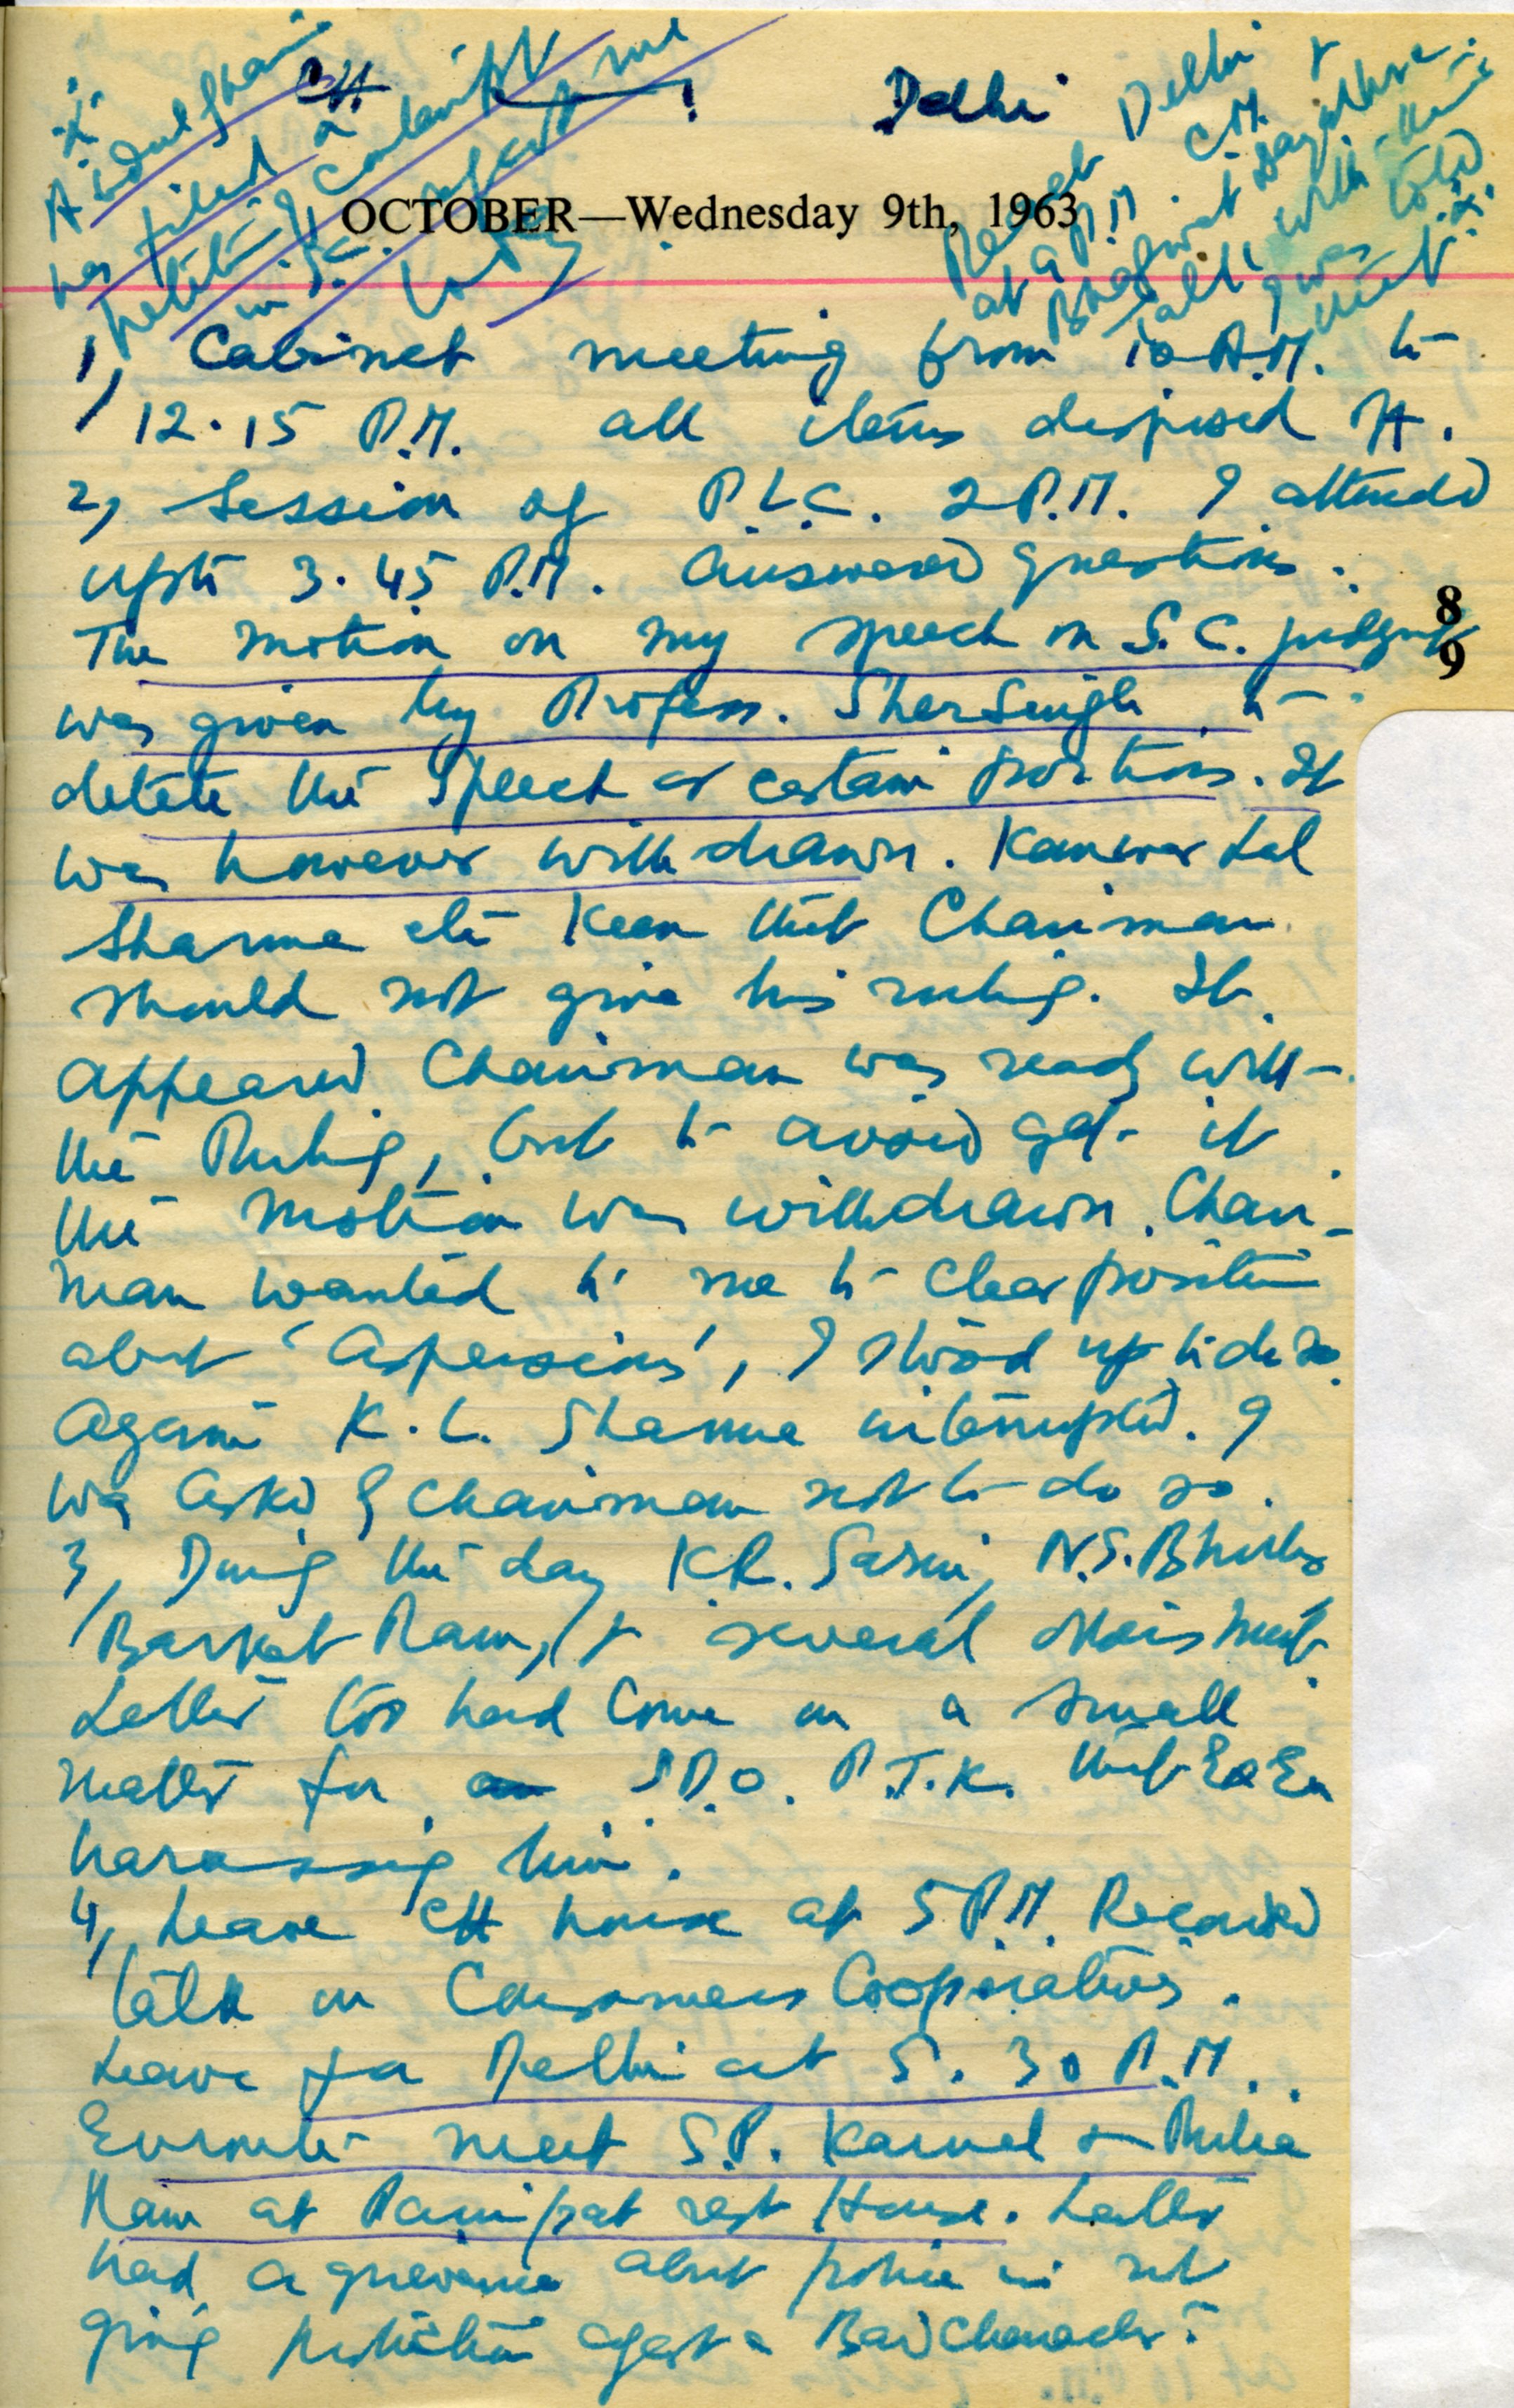 CH Delhi
Abdul Ghani
has filed a
petition of contempt
in S.C. against me
today
Reach Delhi
at 9 P.M. C.M. &
Bhagwat Dayal here.
Talk with them
I was told
that
OCTOBER—Wednesday 9th, 1963
1, Cabinet meeting from 10 A.M. to
12.15 P.M. all items disposed of.
2, Session of P.L.C. 2 P.M. I attended
upto 3.45 P.M. Answered questions.
8
9
The motion on my speech on S.C. judgment
was given by Profess. Sher Singh to
delete the Speech or certain portions. It
was however withdrawn. Kanwar Lal
Sharma etc keen that Chairman
should not give his ruling. It
appeared Chairman was ready with
the Ruling, but to avoid it
the motion was withdrawn. Chair-
man wanted to me to clear position
about 'Aspersions', I stood up to do so
Again K.L. Sharma interrupted. I
was asked by Chairman not to do so.
3, During the day K.R. N.S.
Barkat Ram, & several others met.
Latter too had come in a small
matter for S.D.O. P.T.K. that
harassing him.
4, Leave CH house at 5 P.M. Recorded
talk on Consumers Cooperatives.
Leave for Delhi at 5.30 P.M.
Enroute meet S.P. Karnal & Rulia
Ram at Panipat rest House. Latter
had a grievance about police in not
giving protection against a Bad Character.